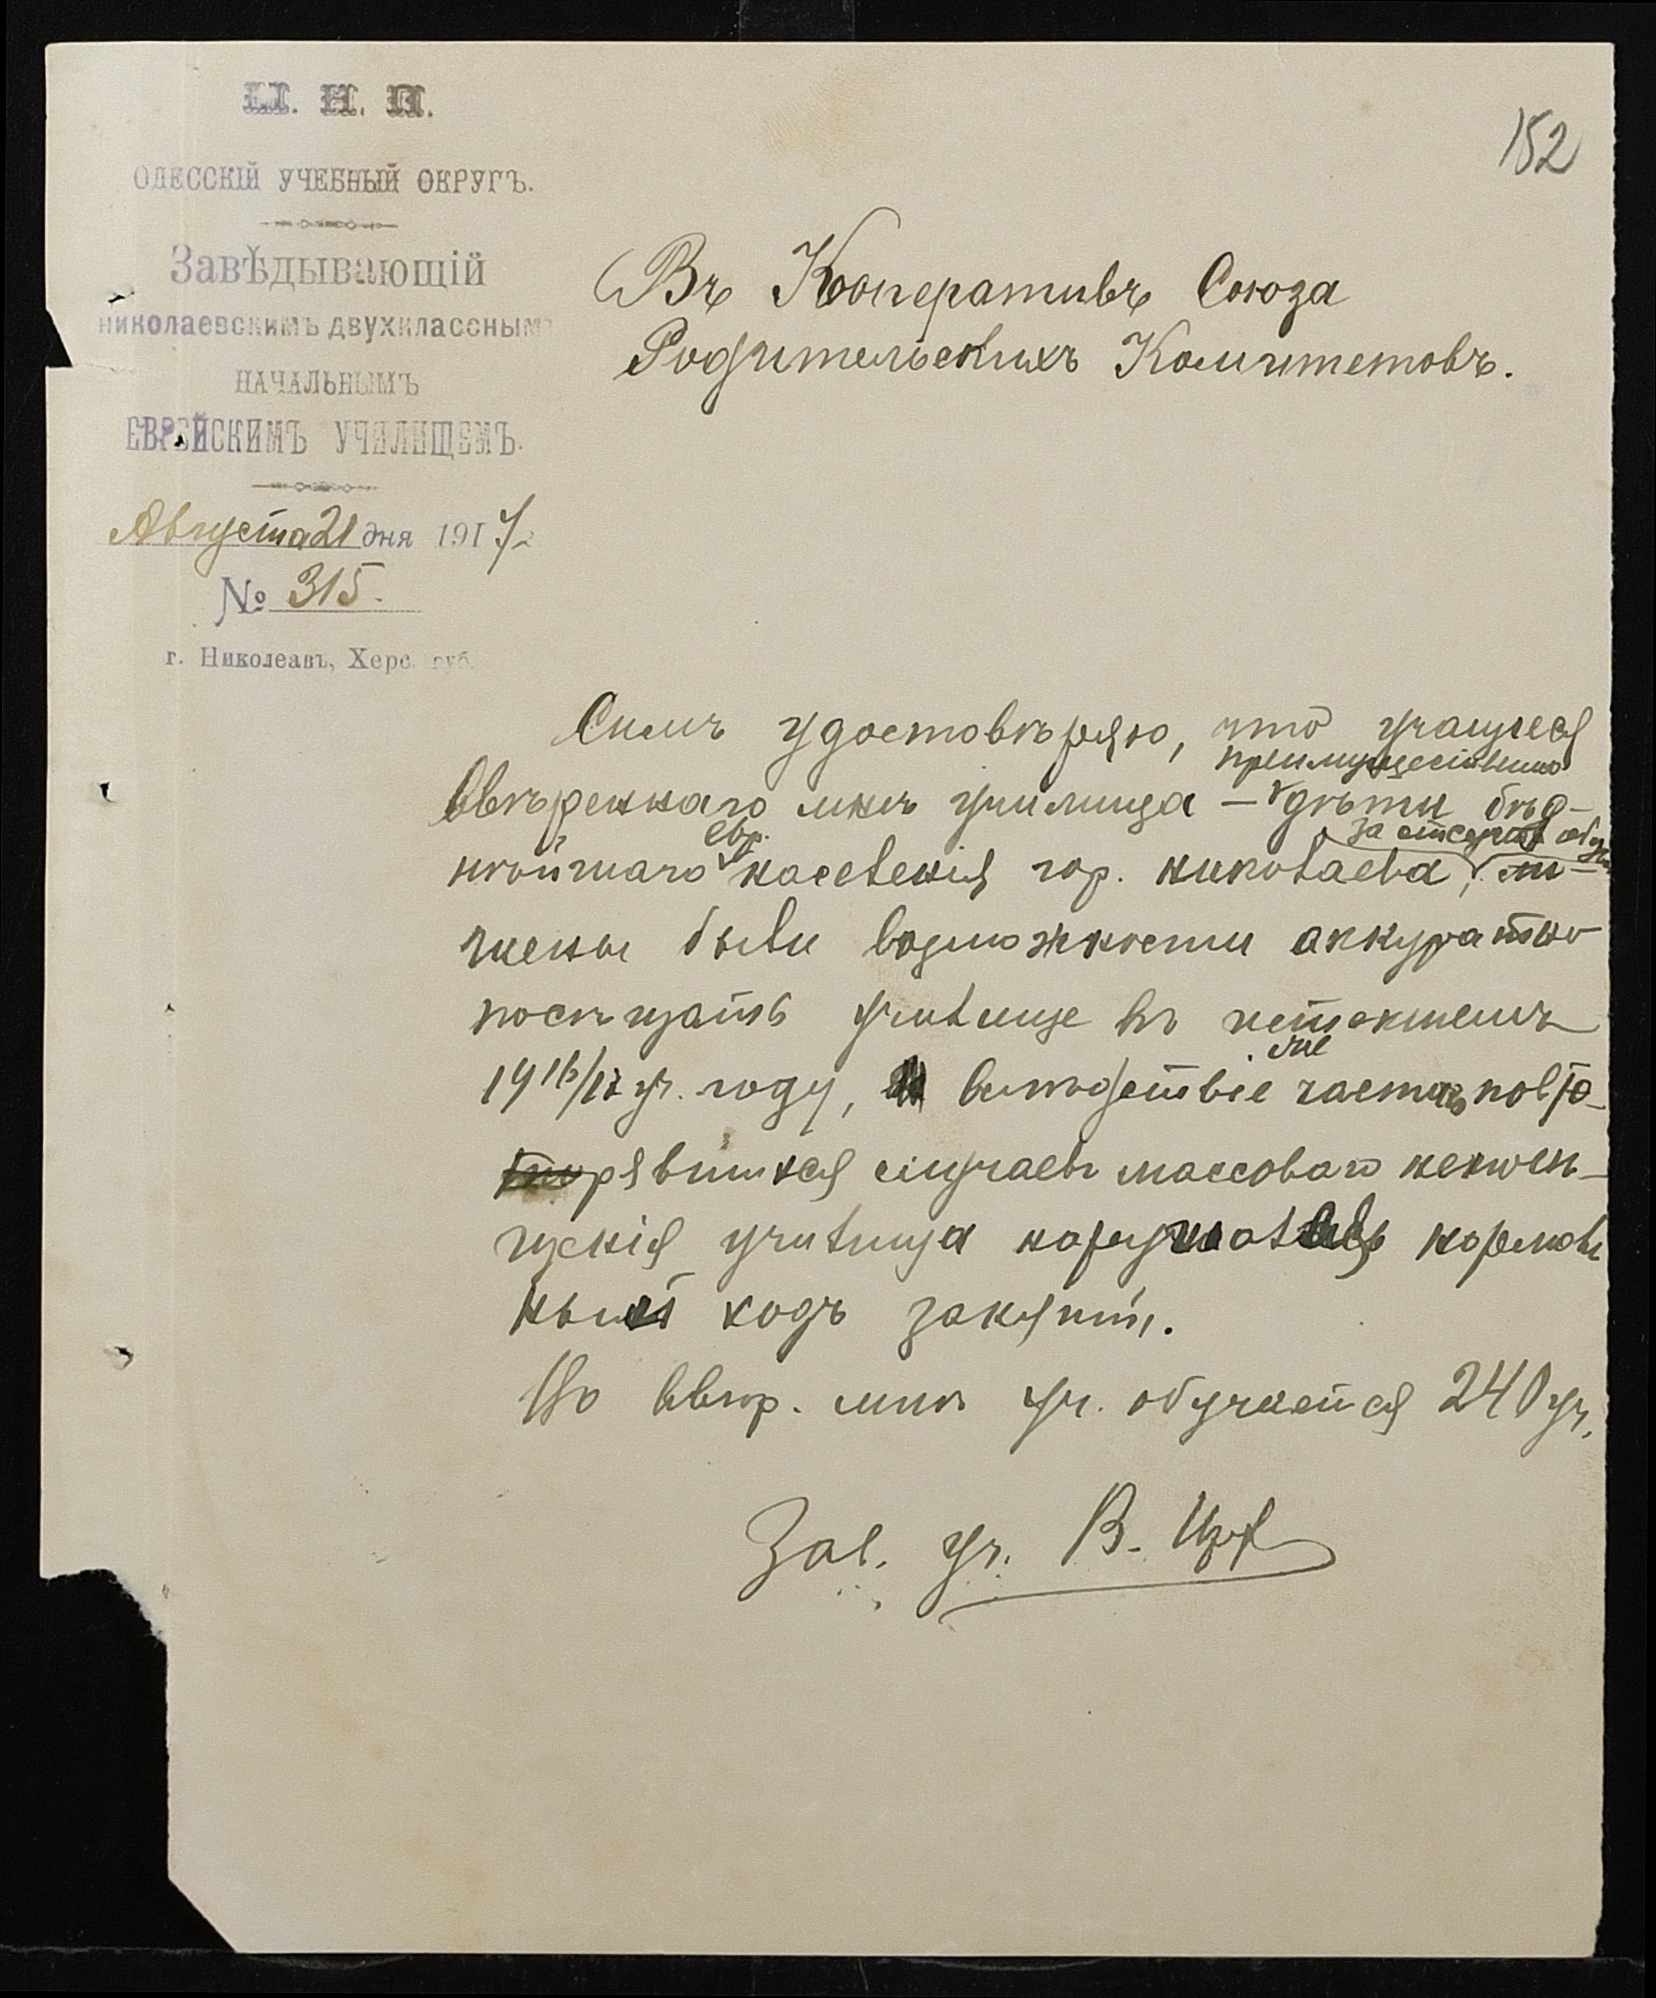 М. Н. П.
ОДЕССКІЙ УЧЕБНЫЙ ОКРУГЪ.
Завѣдывающій
николаевскимъ двухкласснымъ
НАЧАЛЬНЫМЪ
ЕВРЕЙСКИМЪ УЧИЛИЩЕМЪ.
Августа 21 дня 1917
№ 315.
г. Николеавъ, Херс. губ.
152
Въ Кооперативъ Союза
Родительскихъ Комитетовъ.
Симъ удостовѣряю, что учащіеся
преимущественно
ввѣреннаго мнѣ училища – дѣти бѣд-
евр. за отсутст обуви
нѣйшаго населенія гор. Николаева, ли-
шены были возможности аккуратно
посѣщать училище въ истекшемъ
1916/17 уч. году, вслѣдствіе часто повто-
рявшихся случаевъ массоваго непосѣ-
щенія училища нарушался нормаль
ный ходъ занятій.
Во ввѣр. мнѣ уч. обучается 240 уч.
Зав. уч. В.